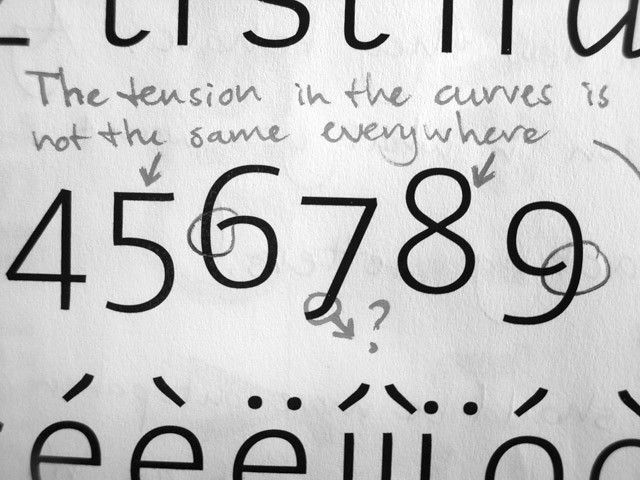 The tension in the curves is
not the same everywhere
456789
?
éèëíìïó